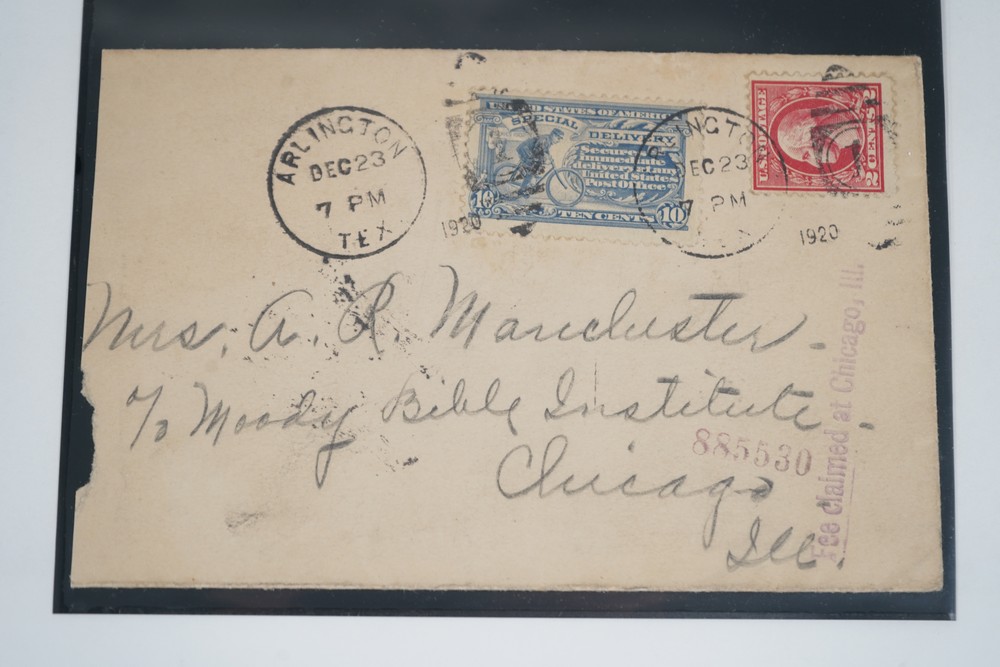 ARLINGTON
DEC 23
7 PM
TEX
1920
UNITED STATES OF AMERICA
SPECIAL DELIVERY
Secures
immediate
delivery at any
United States
Post Office
10 TEN CENTS 10
INGTO
EC 23
7 PM
1920
U.S. POSTAGE
2 CENTS 2
Mrs. A. R. Manchester -
c/o Moody Bible Institute -
Chicago
Ill.
885530
Fee claimed at Chicago, Ill.